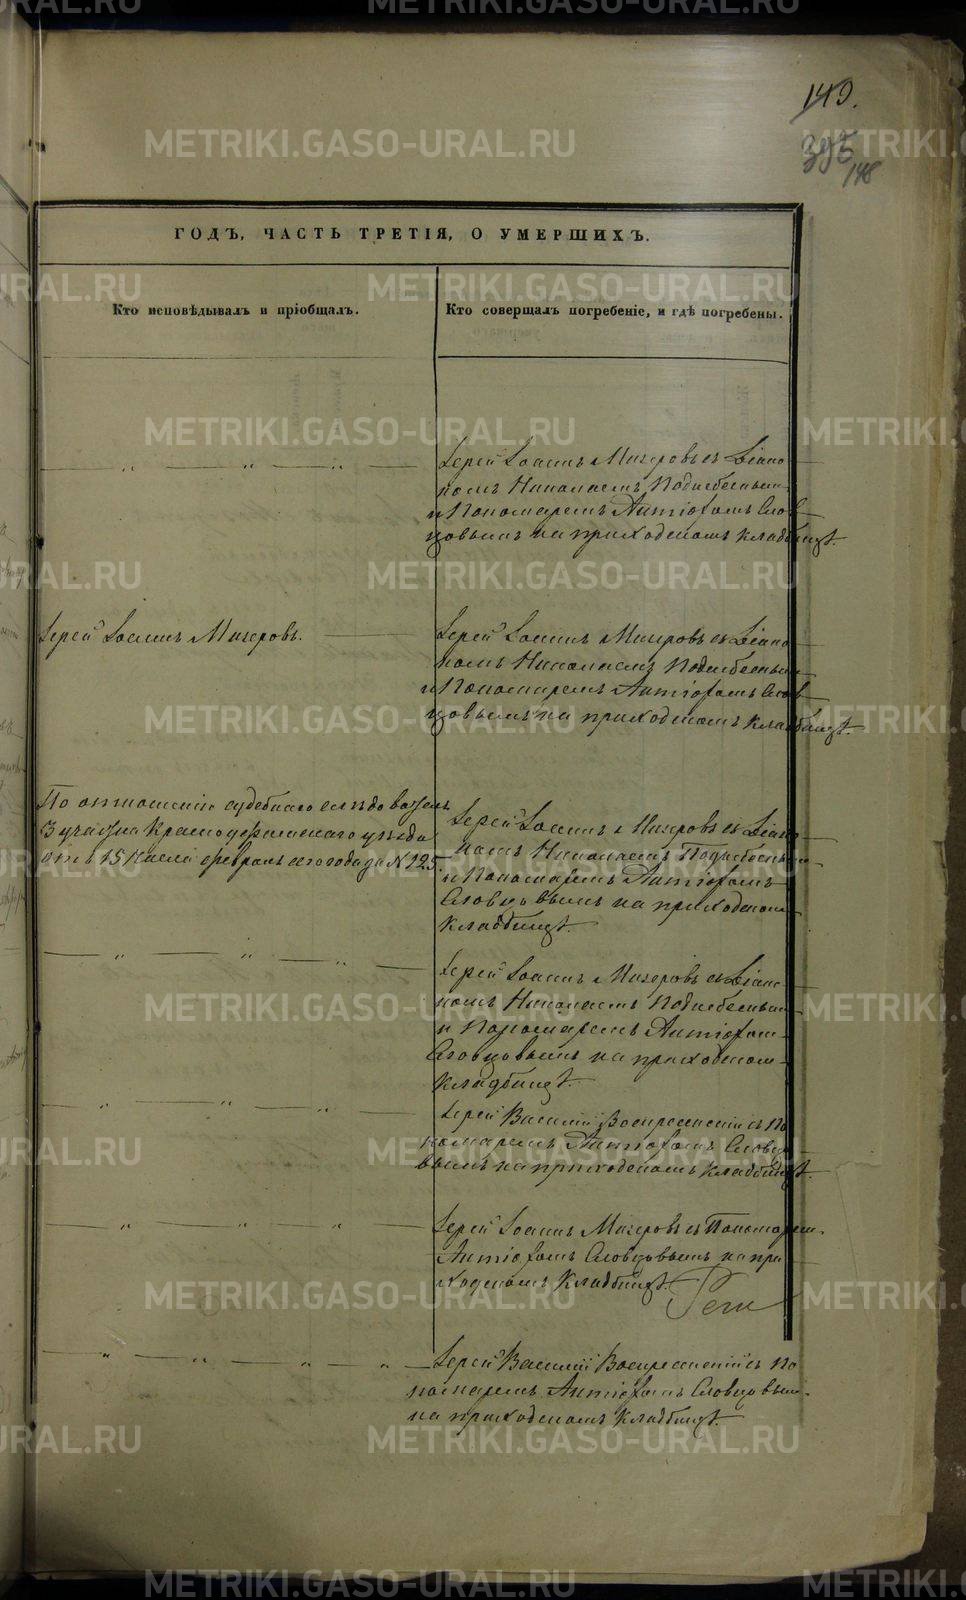 149.
148
ГОДЪ, ЧАСТЬ ТРЕТІЯ, О УМЕРШИХЪ.
Кто исповѣдывалъ и пріобщалъ.
Кто совершалъ погребеніе, и гдѣ погребены.
— „ — „ — „ —
Іерей Іоаннъ Мизеровъ съ Діако
номъ Николаемъ Поднебеснымъ
и Пономаремъ Антіофомъ Слов
цовымъ на приходскомъ кладбищѣ.
Іерей Іоаннъ Мизеровъ.
Іерей Іоаннъ Мизеровъ съ Діако
номъ Николаемъ Поднебеснымъ
и Пономаремъ Антіофомъ Слов
цовымъ на приходскомъ кладбищѣ.
По отношенію судебнаго слѣдователя
3 участка Красноуфимскаго уѣзда
отъ 15 числа февраля сего года за № 125.
Іерей Іоаннъ Мизеровъ съ Діако
номъ Николаемъ Поднебеснымъ
и Пономаремъ Антіофомъ
Словцовымъ на приходскомъ
кладбищѣ.
— „ — „ — „ —
Іерей Іоаннъ Мизеровъ съ Діако
номъ Николаемъ Поднебеснымъ
и Пономаремъ Антіофомъ
Словцовымъ на приходскомъ
кладбищѣ.
— „ — „ — „ —
Іерей Василій Воскресенскій съ По
номаремъ Антіофомъ Словцо
вымъ на приходскомъ кладбищѣ.
— „ — „ — „ —
Іерей Іоаннъ Мизеровъ съ Пономаремъ
Антіофомъ Словцовымъ на при
ходскомъ кладбищѣ.
— „ — „ — „ — „ —
Іерей Василій Воскресенскій съ По
номаремъ Антіофомъ Словцовымъ
на приходскомъ кладбищѣ.
METRIKI.GASO-URAL.RU